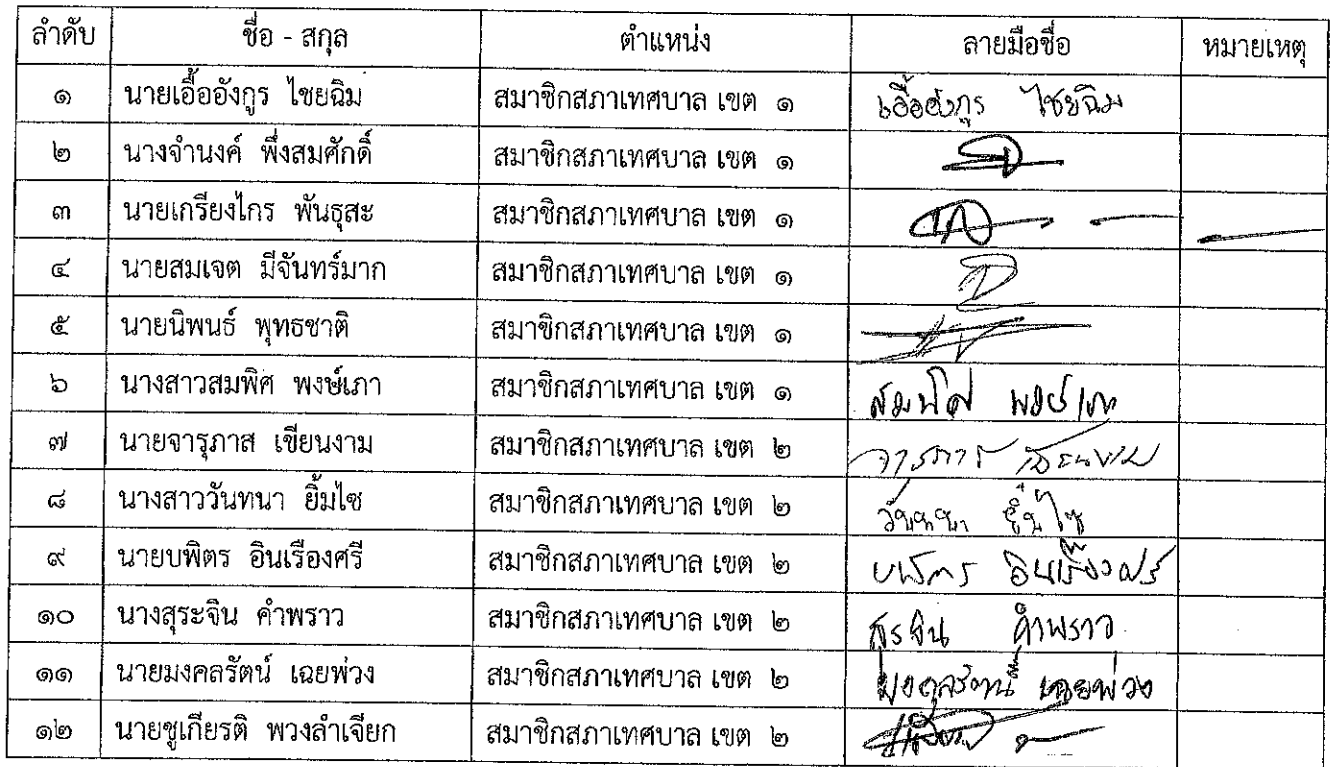 ลำดับ ชื่อ - สกุล ตำแหน่ง ลายมือชื่อ หมายเหตุ
๑ นายเอื้ออังกูร ไชยฉิม สมาชิกสภาเทศบาล เขต ๑ เอื้ออังกูร ไชยฉิม
๒ นางจำนงค์ พึ่งสมศักดิ์ สมาชิกสภาเทศบาล เขต ๑
๓ นายเกรียงไกร พันธุสะ สมาชิกสภาเทศบาล เขต ๑
๔ นายสมเจต มีจันทร์มาก สมาชิกสภาเทศบาล เขต ๑
๕ นายนิพนธ์ พุทธชาติ สมาชิกสภาเทศบาล เขต ๑
๖ นางสาวสมพิศ พงษ์เภา สมาชิกสภาเทศบาล เขต ๑ สมพิศ พงษ์เภา
๗ นายจารุภาส เขียนงาม สมาชิกสภาเทศบาล เขต ๒
๘ นางสาววันทนา ยิ้มไซ สมาชิกสภาเทศบาล เขต ๒ วันทนา ยิ้มไซ
๙ นายบพิตร อินเรืองศรี สมาชิกสภาเทศบาล เขต ๒ บพิตร อินเรืองศรี
๑๐ นางสุระจิน คำพราว สมาชิกสภาเทศบาล เขต ๒ สุรจิน คำพราว
๑๑ นายมงคลรัตน์ เฉยพ่วง สมาชิกสภาเทศบาล เขต ๒ มงคลรัตน์ เฉยพ่วง
๑๒ นายชูเกียรติ พวงลำเจียก สมาชิกสภาเทศบาล เขต ๒